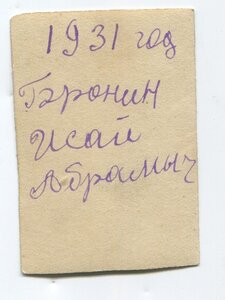 1931 год
Бэронин
Исай
Абрамыч